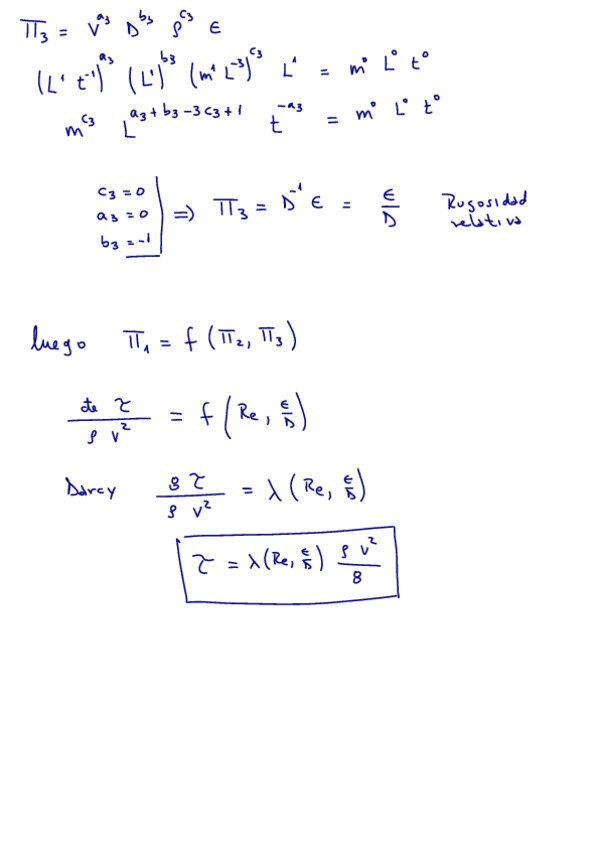 Π₃ = V^a₃ D^b₃ ρ^c₃ ε
(L¹ t⁻¹)^a₃ (L¹)^b₃ (m¹ L⁻³)^c₃ L¹ = m⁰ L⁰ t⁰
m^c₃ L^(a₃ + b₃ − 3c₃ + 1) t^(−a₃) = m⁰ L⁰ t⁰
c₃ = 0
a₃ = 0 ⇒ Π₃ = D⁻¹ ε = ε/D Rugosidad relativa
b₃ = −1
luego Π₁ = f (Π₂, Π₃)
cte τ / ρ V² = f (Re, ε/D)
Darcy 8 τ / ρ V² = λ (Re, ε/D)
τ = λ (Re, ε/D) ρ V² / 8